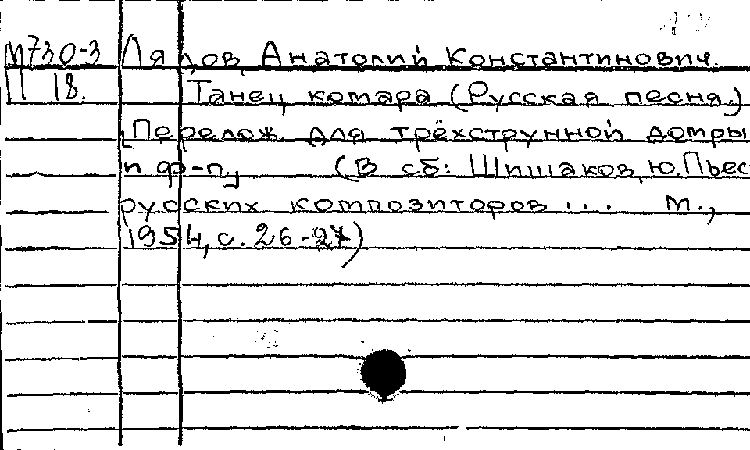 М730-3 Лядов, Анатолий Константинович.
П 18. Танец комара (Русская песня.)
[Перелож. для трёхструнной домры
и ф-п] (В сб: Шишаков, Ю. Пьес
русских композиторов ... М.,
1954, с. 26-27)